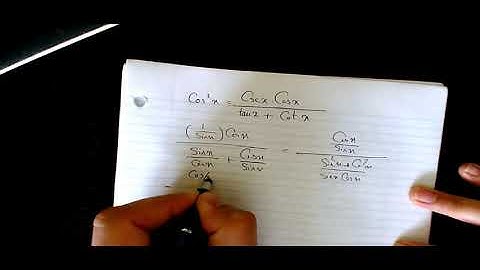 Cos²x = Cscx Cosx / tanx + Cotx
(1/Sinx) Cosx / Sinx/Cosx + Cosx/Sinx = Cosx/Sinx / Sin²x+Cos²x/Sinx Cosx
= Cos